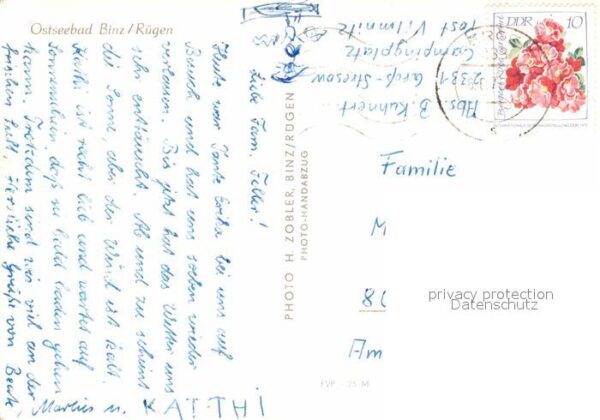 Ostseebad Binz/Rügen
Liebe Fam. Feller!
Heute war Tante Erika bei uns auf
Besuch und hat uns soeben wieder
verlassen. Bis jetzt hat das Wetter uns
sehr enttäuscht. Ab und zu scheint
die Sonne, aber der Wind ist kalt.
Kathi ist recht lieb und wartet auf
Sonnenschein, daß sie bald baden gehen
kann. Trotzdem sind wir viel an der
frischen Luft. Herzliche Grüße von Beate,
Marlies u. KATHI
PHOTO H. ZOBLER, BINZ/RÜGEN
PHOTO-HANDABZUG
PVP -.25 M
Abs. B. Kuhnert
2331 Groß-Stresow
Campingplatz
Post Vilmnitz
DDR 10
Familie
M
8
Am
privacy protection
Datenschutz